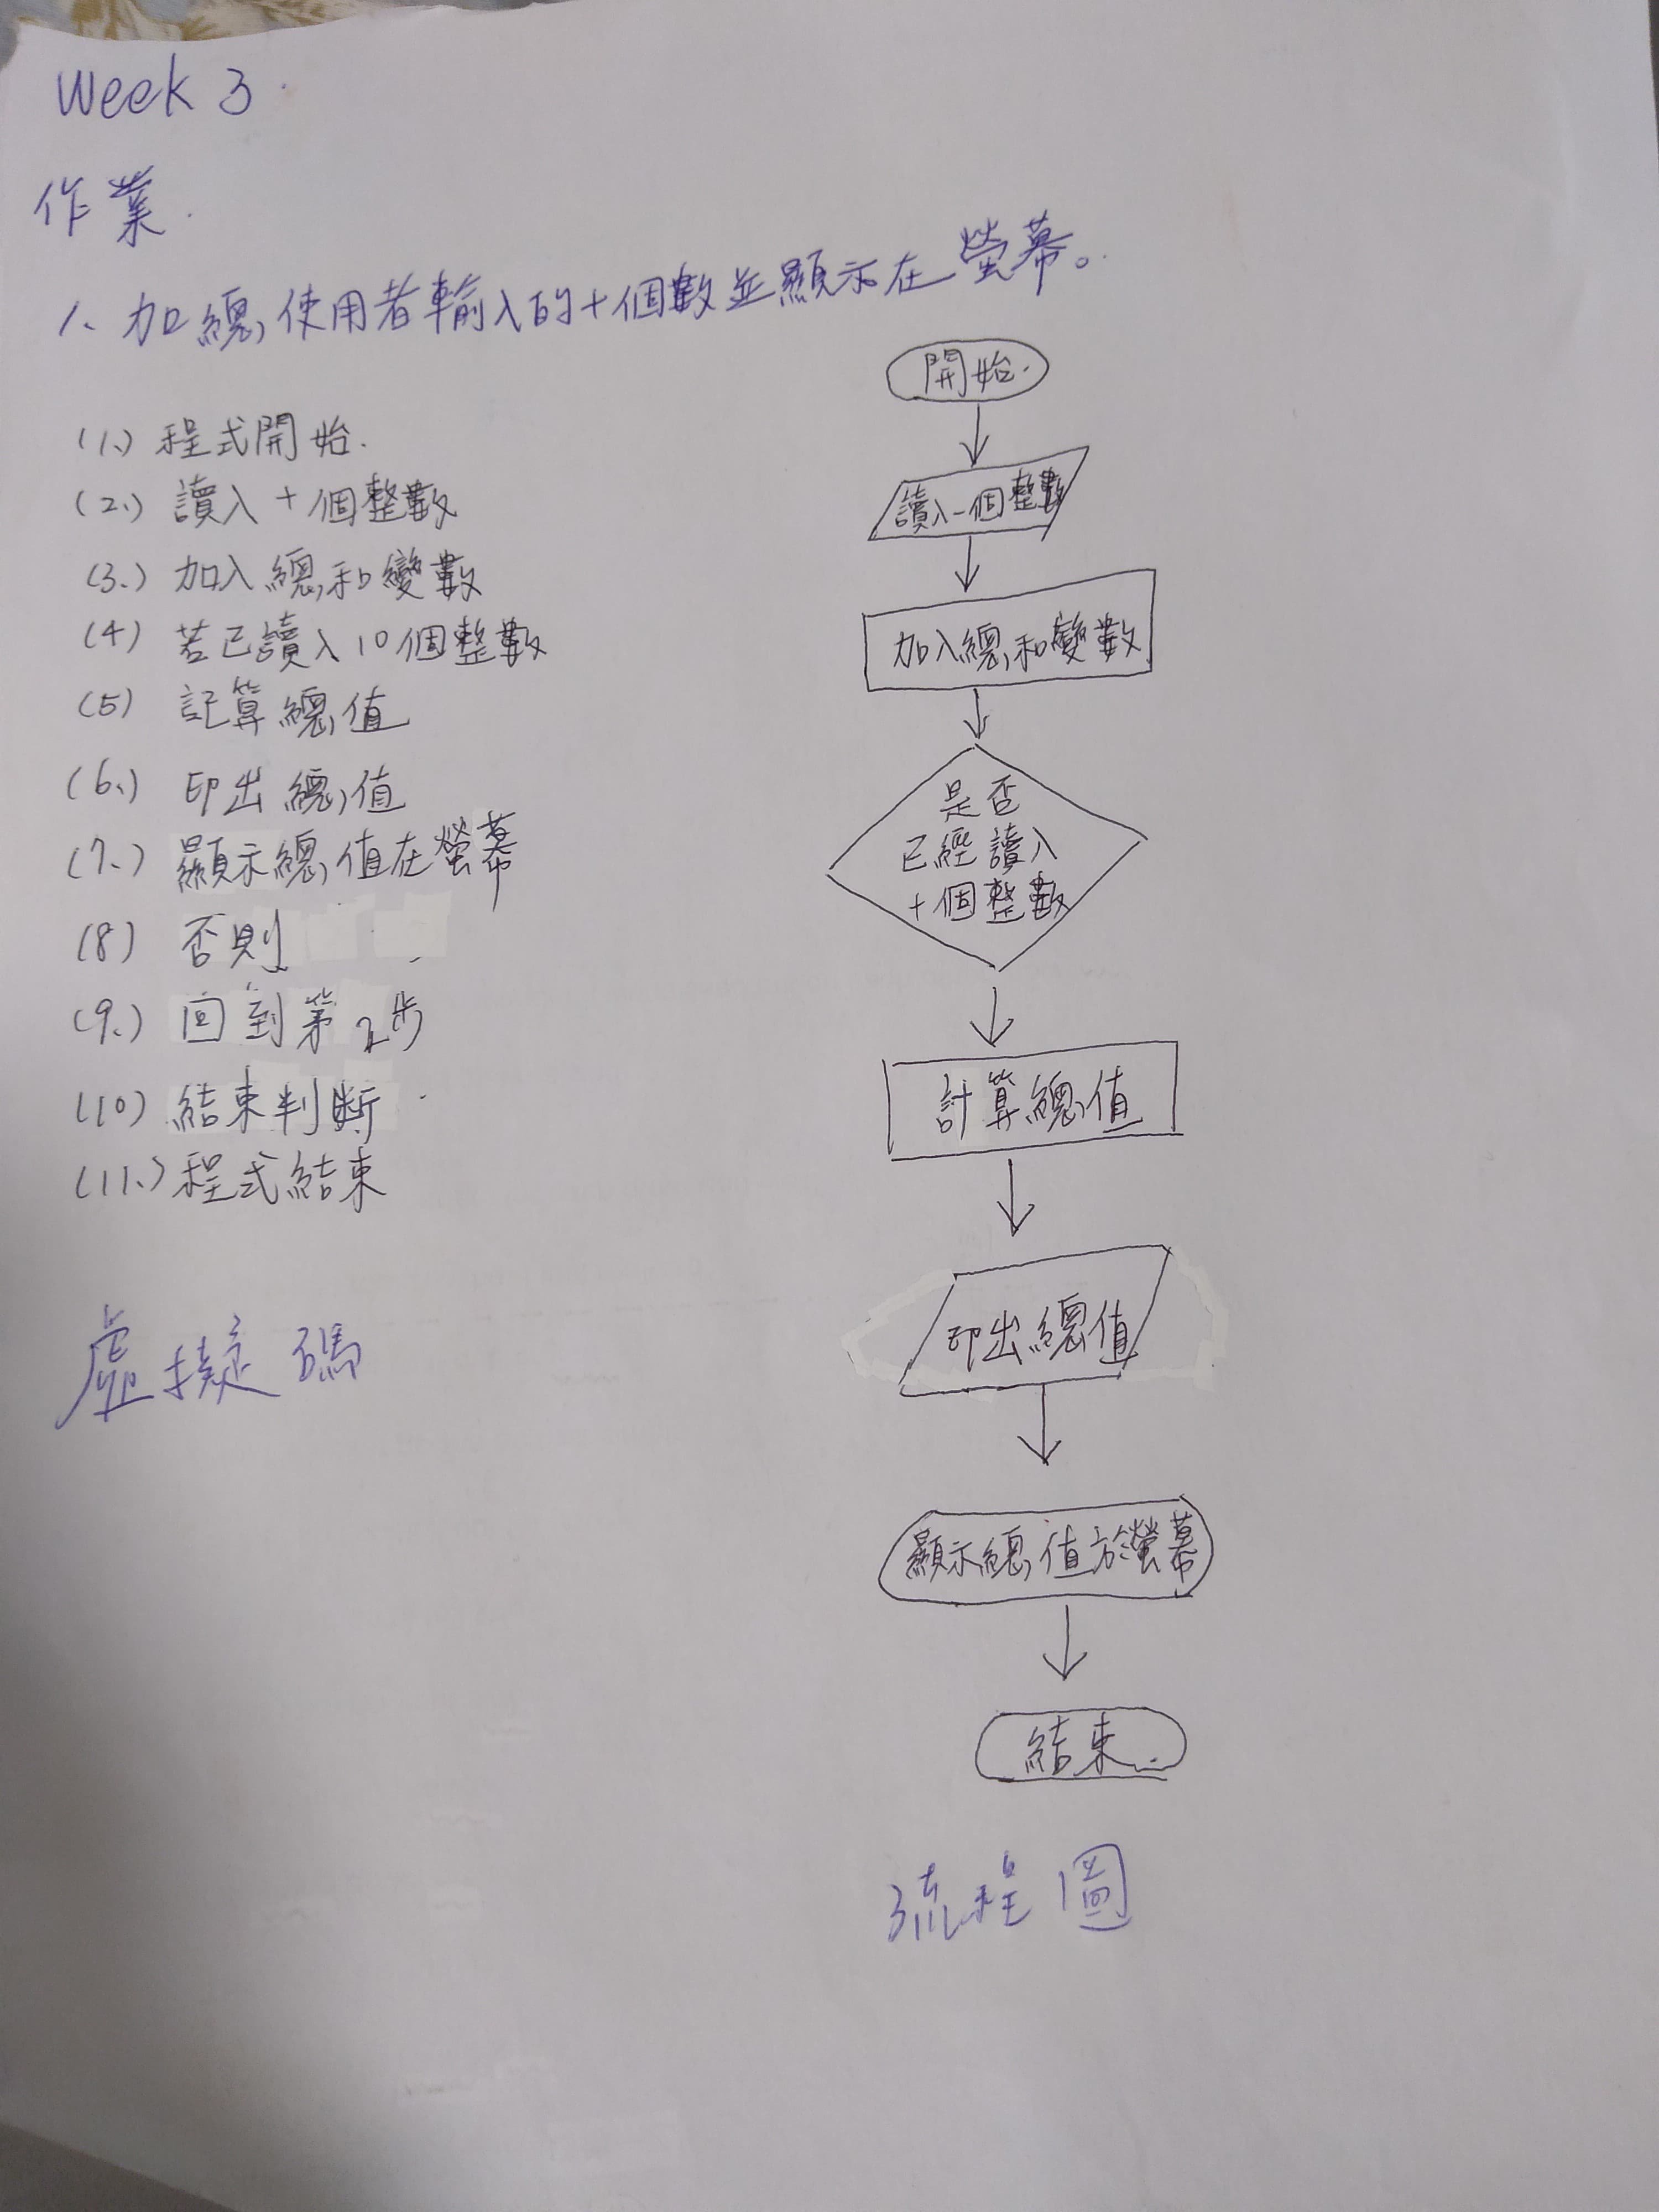 Week 3.
作業.
1、加總使用者輸入的十個數並顯示在螢幕。
(1、) 程式開始.
(2、) 讀入十個整數
(3、) 加入總和變數
(4) 若已讀入10個整數
(5) 計算總值
(6、) 印出總值
(7、) 顯示總值在螢幕
(8) 否則
(9、) 回到第2步
(10) 結束判斷
(11、) 程式結束
虛擬碼
開始.
讀入一個整數
加入總和變數
是否
已經讀入
十個整數
計算總值
印出總值
顯示總值於螢幕
結束.
流程圖